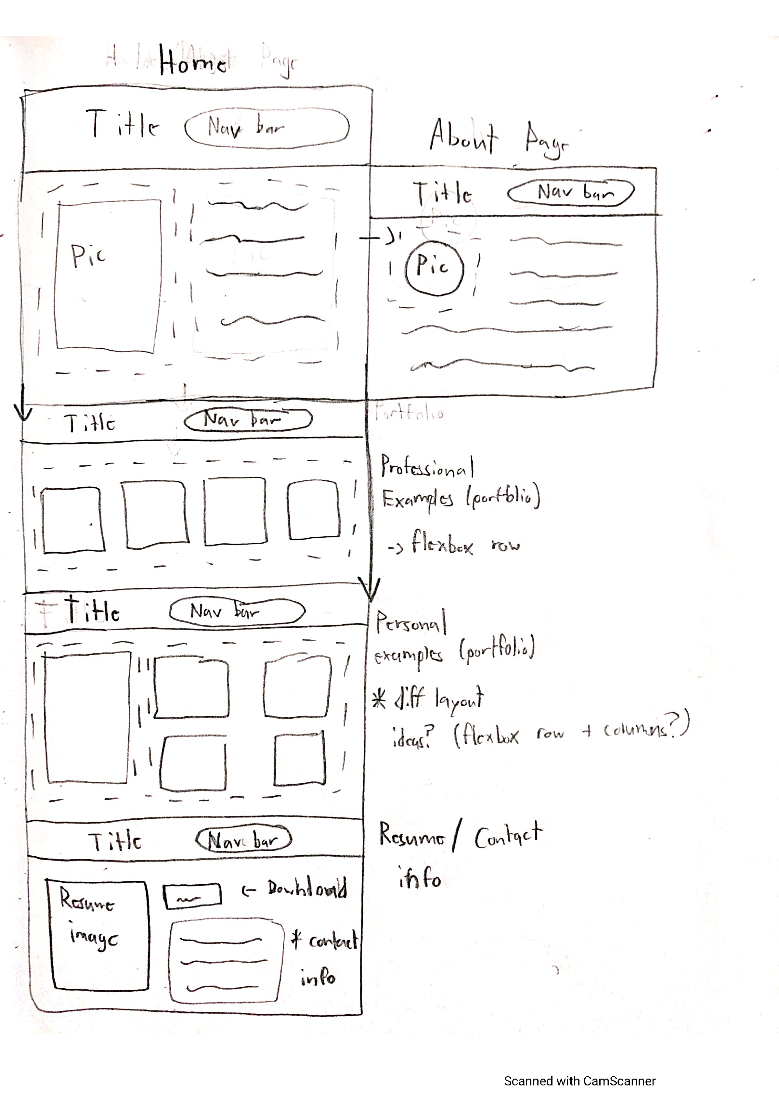 Home
Title
Nav bar
Pic
About Page
Title
Nav bar
Pic
Title
Nav bar
Portfolio
Professional
Examples (portfolio)
-> flexbox row
Title
Nav bar
Personal
examples (portfolio)
* diff layout
ideas? (flexbox row + columns?)
Title
Nav bar
Resume / Contact
info
Resume
image
<- Download
* contact
info
Scanned with CamScanner